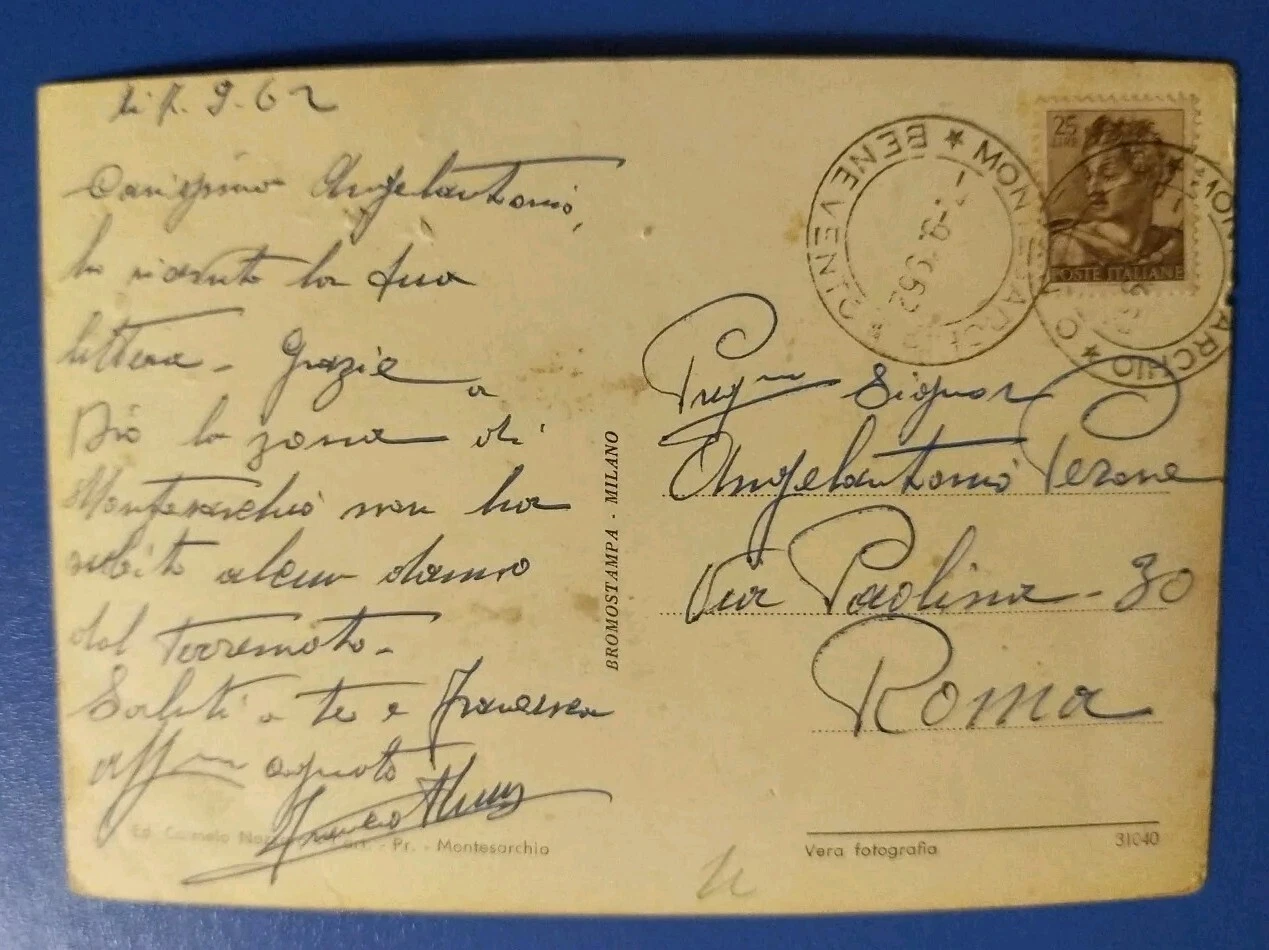 9-62
Carissimo Angelantonio,
ho ricevuto la tua
lettera - Grazie a
Dio la zona di
Montesarchio non ha
subito alcun danno
dal terremoto -
Saluti a te e Francesca
aff
Franco
Ed. Carmelo - Pr. - Montesarchio
BROMOSTAMPA - MILANO
MONTESARCHIO ★ BENEVENTO ★
25
LIRE
POSTE ITALIANE
Signor
Angelantonio Perone
Via Paolina - 30
Roma
Vera fotografia
31040